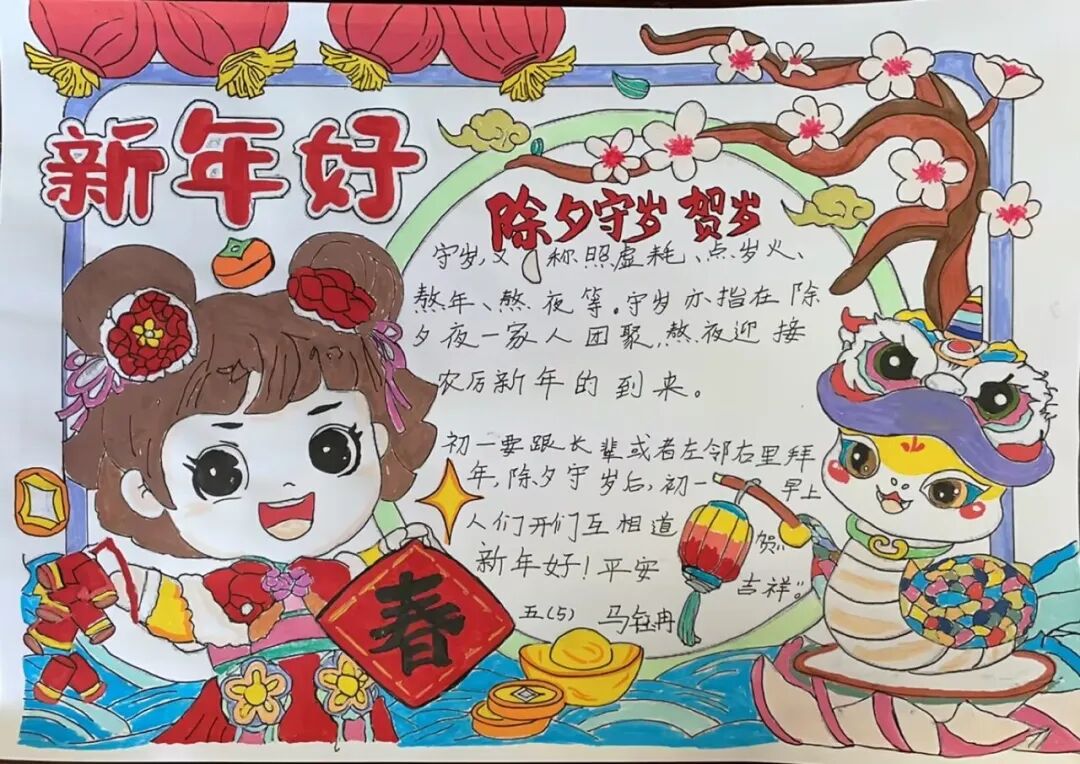 新年好
除夕守岁 贺岁
守岁,又称照虚耗、点岁火、
熬年、熬夜等。守岁亦指在除
夕夜一家人团聚,熬夜迎接
农历新年的到来。
初一要跟长辈或者左邻右里拜
年,除夕守岁后,初一早上
人们开们互相道贺
新年好!平安吉祥。
五(5) 马钰冉
春